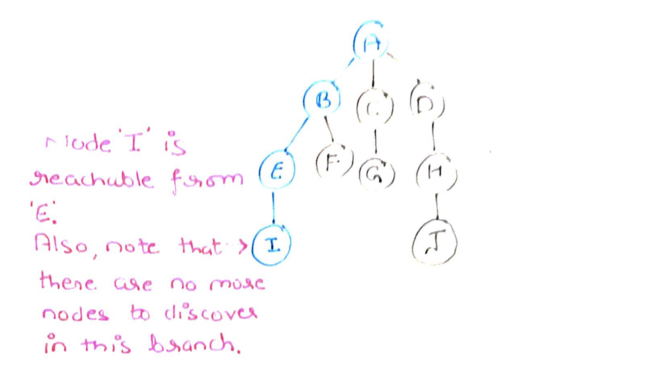 A
B C D
Node 'I' is
reachable from
'E'.
E F G H
Also, note that
I J
there are no more
nodes to discover
in this branch.